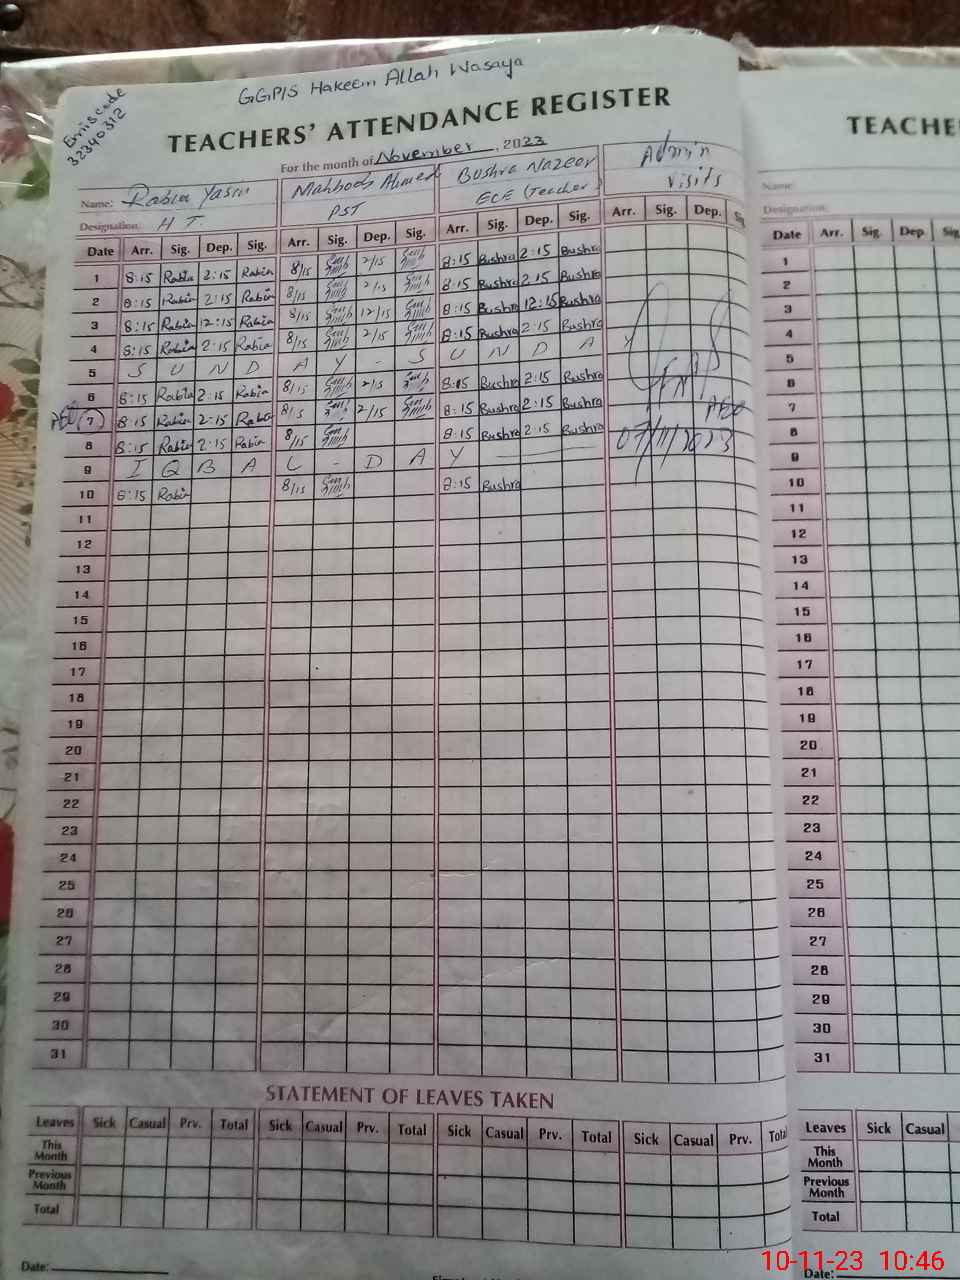 GGPIS Hakeem Allah Wasaya
Emiscode
32340312
TEACHERS' ATTENDANCE REGISTER
For the month of November, 2023
Name: Rabia Yasin Mahboob Ahmed Bushra Nazeer Admin
Designation: H T. PST ECE (Teacher) Visits
Date Arr. Sig. Dep. Sig. Arr. Sig. Dep. Sig. Arr. Sig. Dep. Sig. Arr. Sig. Dep. Sig
1 8:15 Rabia 2:15 Rabia 8/15 2/15 8:15 Bushra 2:15 Bushra
2 8:15 Rabia 2:15 Rabia 8/15 2/15 8:15 Bushra 2:15 Bushra
3 8:15 Rabia 12:15 Rabia 8/15 12/15 8:15 Bushra 12:15 Bushra
4 8:15 Rabia 2:15 Rabia 8/15 2/15 8:15 Bushra 2:15 Bushra
5 S U N D A Y - S U N D A Y
6 8:15 Rabia 2:15 Rabia 8/15 2/15 8:15 Bushra 2:15 Bushra
AEO 7 8:15 Rabia 2:15 Rabia 8/15 2/15 8:15 Bushra 2:15 Bushra AEO
8 8:15 Rabia 2:15 Rabia 8/15 8:15 Bushra 2:15 Bushra 07/11/2023
9 I Q B A L - D A Y
10 8:15 Rabia 8/15 8:15 Bushra
11
12
13
14
15
16
17
18
19
20
21
22
23
24
25
26
27
28
29
30
31
STATEMENT OF LEAVES TAKEN
Leaves Sick Casual Prv. Total Sick Casual Prv. Total Sick Casual Prv. Total Sick Casual Prv. Total
This Month
Previous Month
Total
Date:
TEACHE
Name:
Designation:
Date Arr. Sig. Dep. Sig
1
2
3
4
5
6
7
8
9
10
11
12
13
14
15
16
17
18
19
20
21
22
23
24
25
26
27
28
29
30
31
Leaves Sick Casual
This Month
Previous Month
Total
Date:
10-11-23 10:46